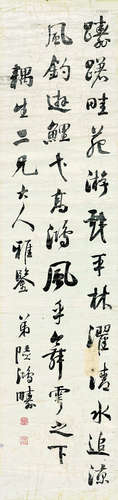 躊躇畦苑游戲平林濯清水追涼
風釣遊鯉弋高鴻風乎舞雩之下
耦生二兄大人雅鑒 弟陸鴻疇